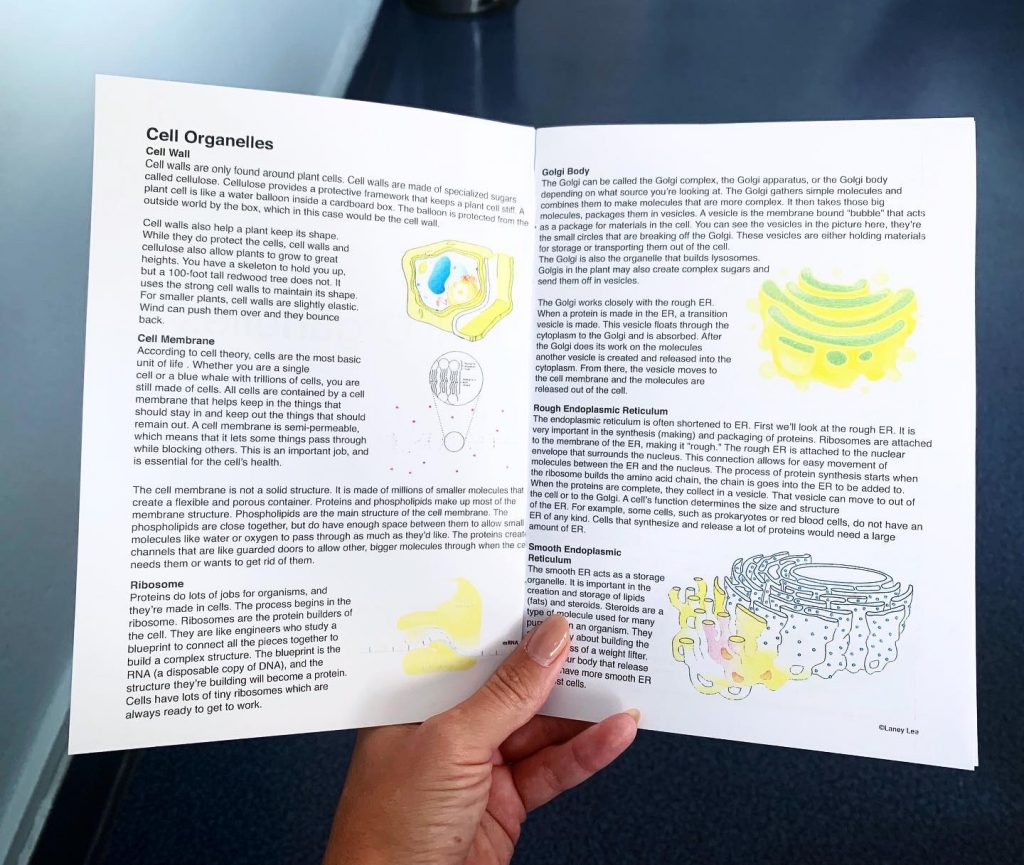 Cell Organelles
Cell Wall
Cell walls are only found around plant cells. Cell walls are made of specialized sugars
called cellulose. Cellulose provides a protective framework that keeps a plant cell stiff. A
plant cell is like a water balloon inside a cardboard box. The balloon is protected from the
outside world by the box, which in this case would be the cell wall.
Cell walls also help a plant keep its shape.
While they do protect the cells, cell walls and
cellulose also allow plants to grow to great
heights. You have a skeleton to hold you up,
but a 100-foot tall redwood tree does not. It
uses the strong cell walls to maintain its shape.
For smaller plants, cell walls are slightly elastic.
Wind can push them over and they bounce
back.
Cell Membrane
According to cell theory, cells are the most basic
unit of life . Whether you are a single
cell or a blue whale with trillions of cells, you are
still made of cells. All cells are contained by a cell
membrane that helps keep in the things that
should stay in and keep out the things that should
remain out. A cell membrane is semi-permeable,
which means that it lets some things pass through
while blocking others. This is an important job, and
is essential for the cell's health.
The cell membrane is not a solid structure. It is made of millions of smaller molecules that
create a flexible and porous container. Proteins and phospholipids make up most of the
membrane structure. Phospholipids are the main structure of the cell membrane. The
phospholipids are close together, but do have enough space between them to allow small
molecules like water or oxygen to pass through as much as they'd like. The proteins create
channels that are like guarded doors to allow other, bigger molecules through when the ce
needs them or wants to get rid of them.
Ribosome
Proteins do lots of jobs for organisms, and
they're made in cells. The process begins in the
ribosome. Ribosomes are the protein builders of
the cell. They are like engineers who study a
blueprint to connect all the pieces together to
build a complex structure. The blueprint is the
RNA (a disposable copy of DNA), and the
structure they're building will become a protein.
Cells have lots of tiny ribosomes which are
always ready to get to work.
mRNA
Golgi Body
The Golgi can be called the Golgi complex, the Golgi apparatus, or the Golgi body
depending on what source you're looking at. The Golgi gathers simple molecules and
combines them to make molecules that are more complex. It then takes those big
molecules, packages them in vesicles. A vesicle is the membrane bound "bubble" that acts
as a package for materials in the cell. You can see the vesicles in the picture here, they're
the small circles that are breaking off the Golgi. These vesicles are either holding materials
for storage or transporting them out of the cell.
The Golgi is also the organelle that builds lysosomes.
Golgis in the plant may also create complex sugars and
send them off in vesicles.
The Golgi works closely with the rough ER.
When a protein is made in the ER, a transition
vesicle is made. This vesicle floats through the
cytoplasm to the Golgi and is absorbed. After
the Golgi does its work on the molecules
another vesicle is created and released into the
cytoplasm. From there, the vesicle moves to
the cell membrane and the molecules are
released out of the cell.
Rough Endoplasmic Reticulum
The endoplasmic reticulum is often shortened to ER. First we'll look at the rough ER. It is
very important in the synthesis (making) and packaging of proteins. Ribosomes are attached
to the membrane of the ER, making it "rough." The rough ER is attached to the nuclear
envelope that surrounds the nucleus. This connection allows for easy movement of
molecules between the ER and the nucleus. The process of protein synthesis starts when
the ribosome builds the amino acid chain, the chain is goes into the ER to be added to.
When the proteins are complete, they collect in a vesicle. That vesicle can move to out of
the cell or to the Golgi. A cell's function determines the size and structure
of the ER. For example, some cells, such as prokaryotes or red blood cells, do not have an
ER of any kind. Cells that synthesize and release a lot of proteins would need a large
amount of ER.
Smooth Endoplasmic
Reticulum
The smooth ER acts as a storage
organelle. It is important in the
creation and storage of lipids
(fats) and steroids. Steroids are a
type of molecule used for many
in an organism. They
about building the
ss of a weight lifter.
our body that release
have more smooth ER
st cells.
©Laney Lea